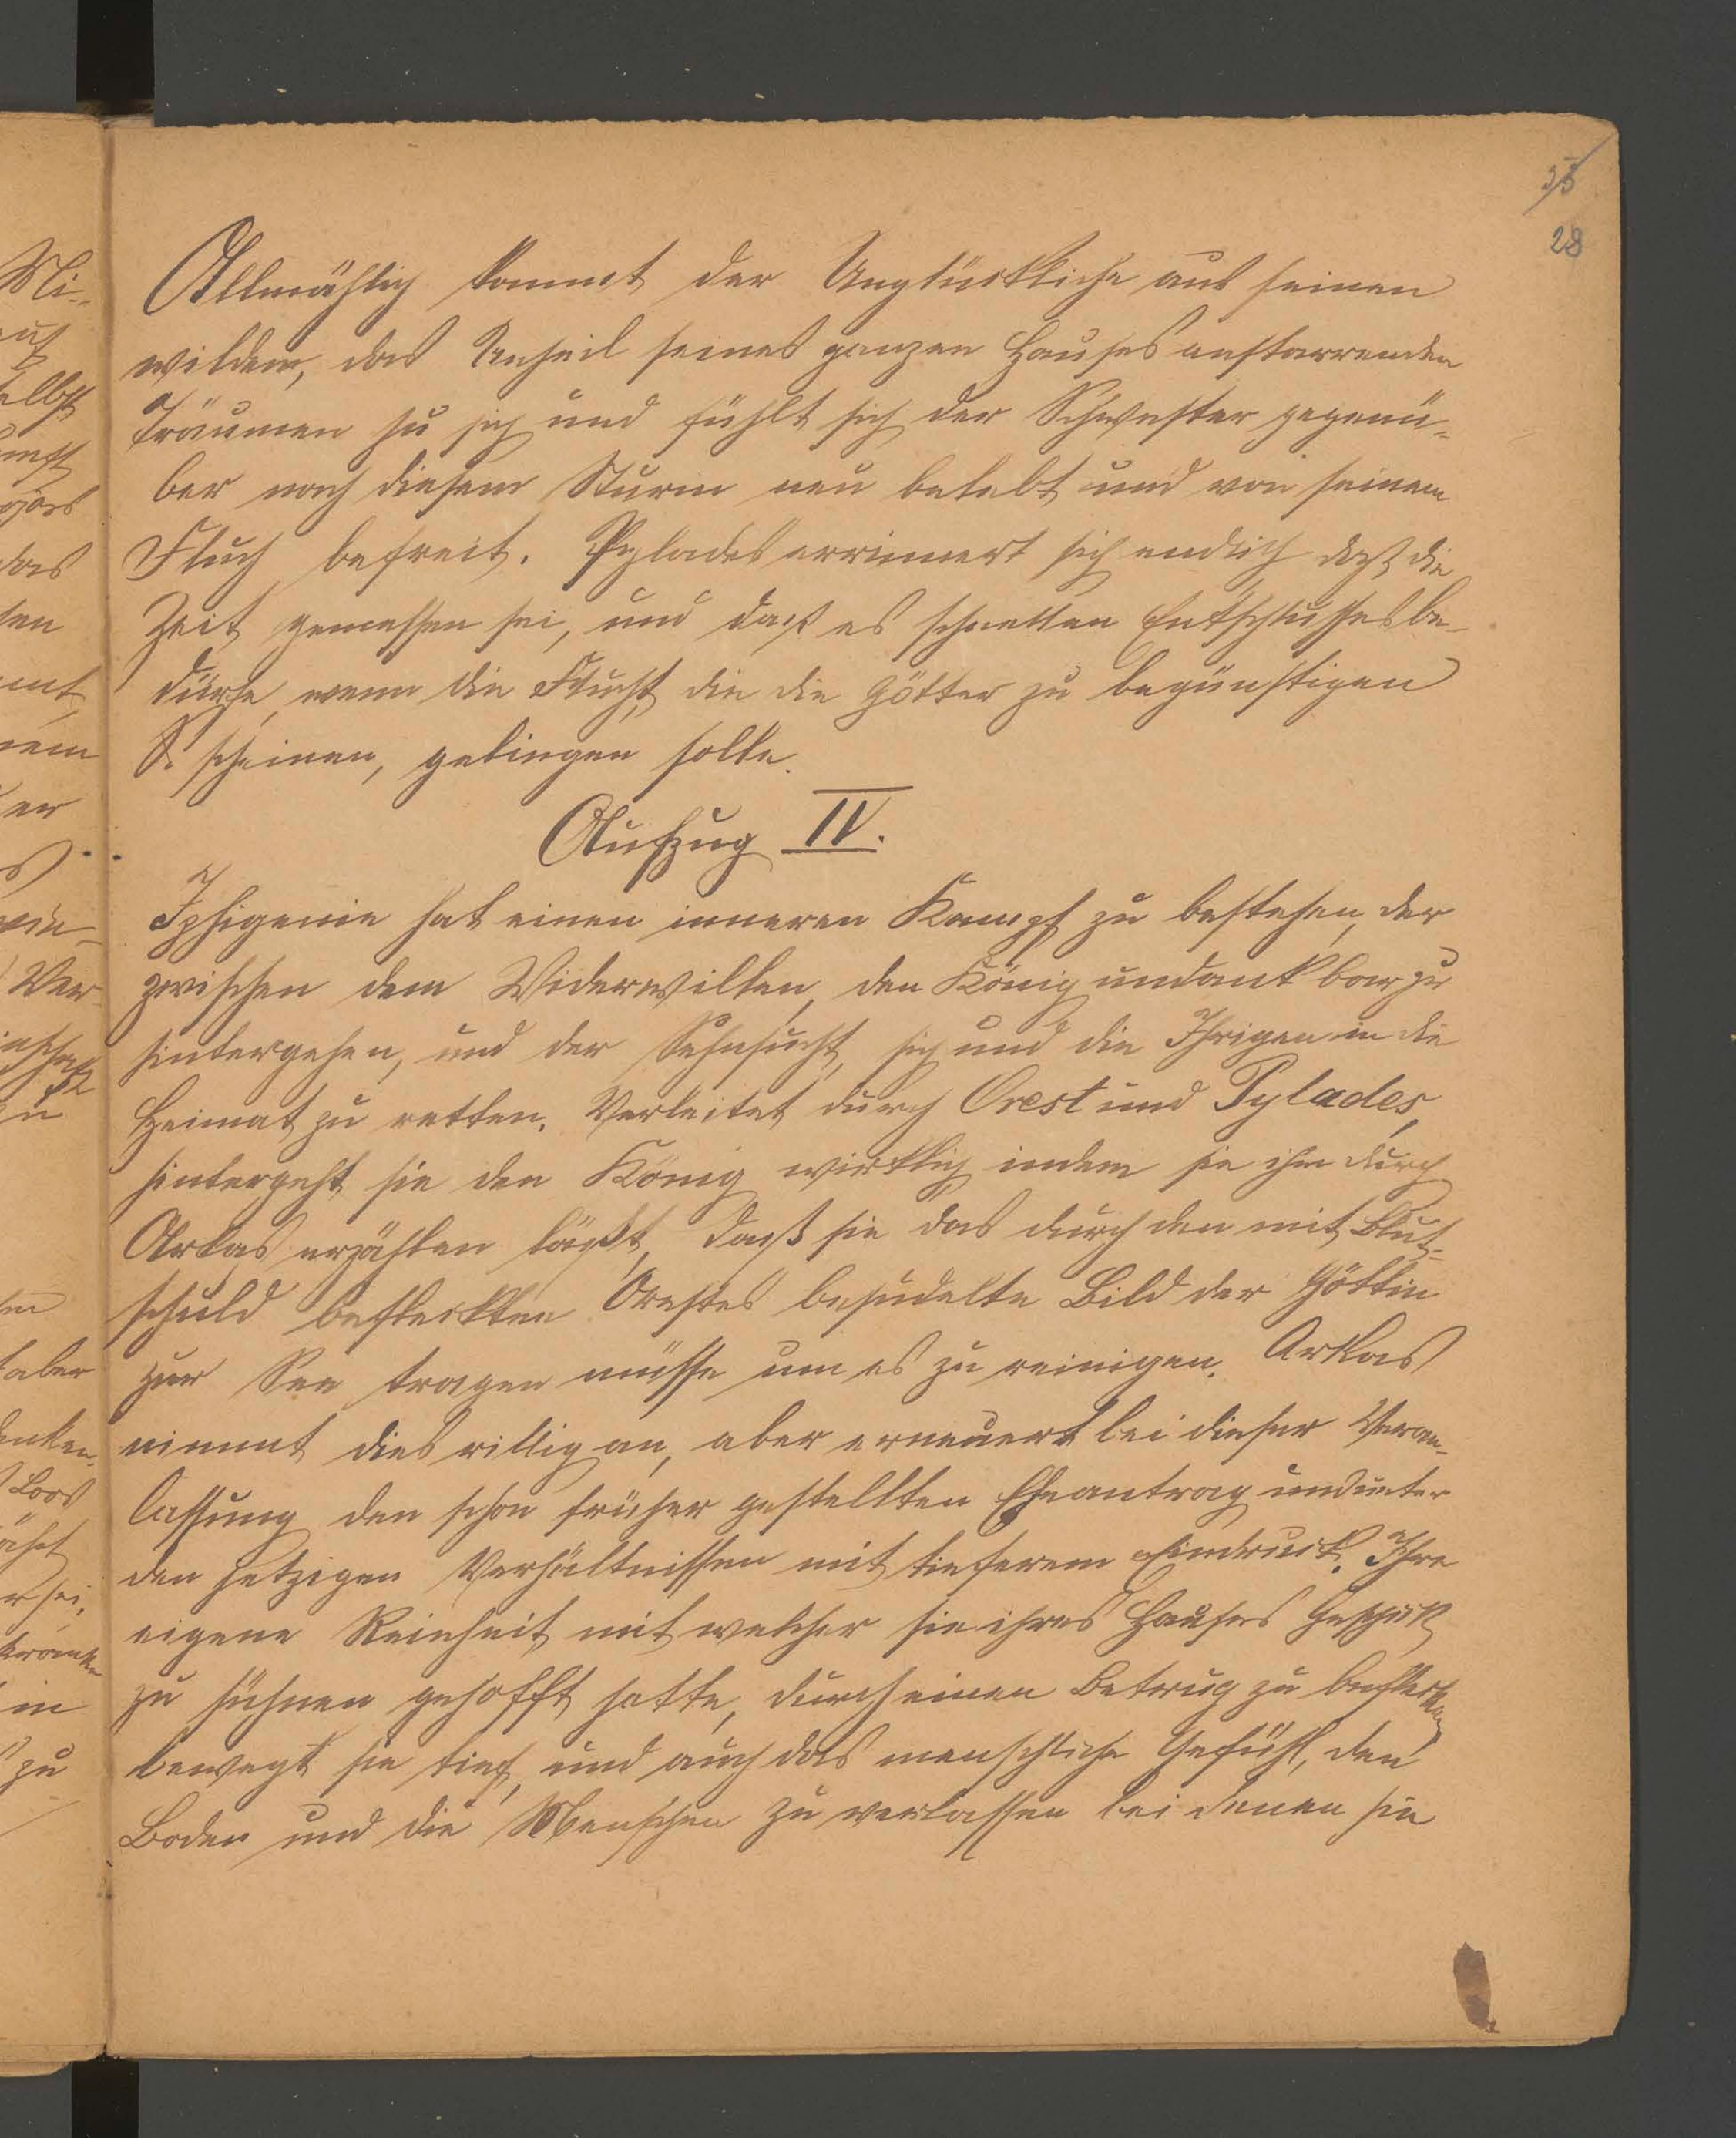 35
28
Allmählig kommt der Unglückliche aus seinen
wilden, das Unheil seines ganzen Hauses anstarrenden
Träumen zu sich und fühlt sich der Schwester gegenü-
ber nach diesem Sturm neu belebt und von seinem
Fluch befreit. Pylades errinnert sich endlich daß die
Zeit gemessen sei, und daß es schnellen Entschlusses be-
dürfe, wenn die Flucht, die die Götter zu begünstigen
S. scheinen, gelingen solle.
Aufzug IV.
Iphigenie hat einen inneren Kampf zu bestehen, der
zwischen dem Widerwillen, den König undankbar zu
hintergehen, und der Sehnsucht, sich und die Ihrigen in die
Heimat zu retten. Verleitet durch Orest und Pylades,
hintergeht sie den König wirklich, indem sie ihm durch
Arkas erzählen läßt, daß sie das durch den mit Blut-
schuld befleckten Orestes besudelte Bild der Göttin
zur See tragen müsse um es zu reinigen. Arkas
nimmt dies willig an, aber erneuert bei dieser Veran-
lassung den schon früher gestellten Eheantrag und unter
den jetzigen Verhältnissen mit tieferem Eindruck. Ihre
eigene Reinheit mit welcher sie ihres Hauses Geschick
zu sühnen gehofft hatte, durch einen Betrug zu beflecken
bewegt sie tief, und auch das menschliche Gefühl, den
Boden und die Menschen zu verlassen bei denen sie